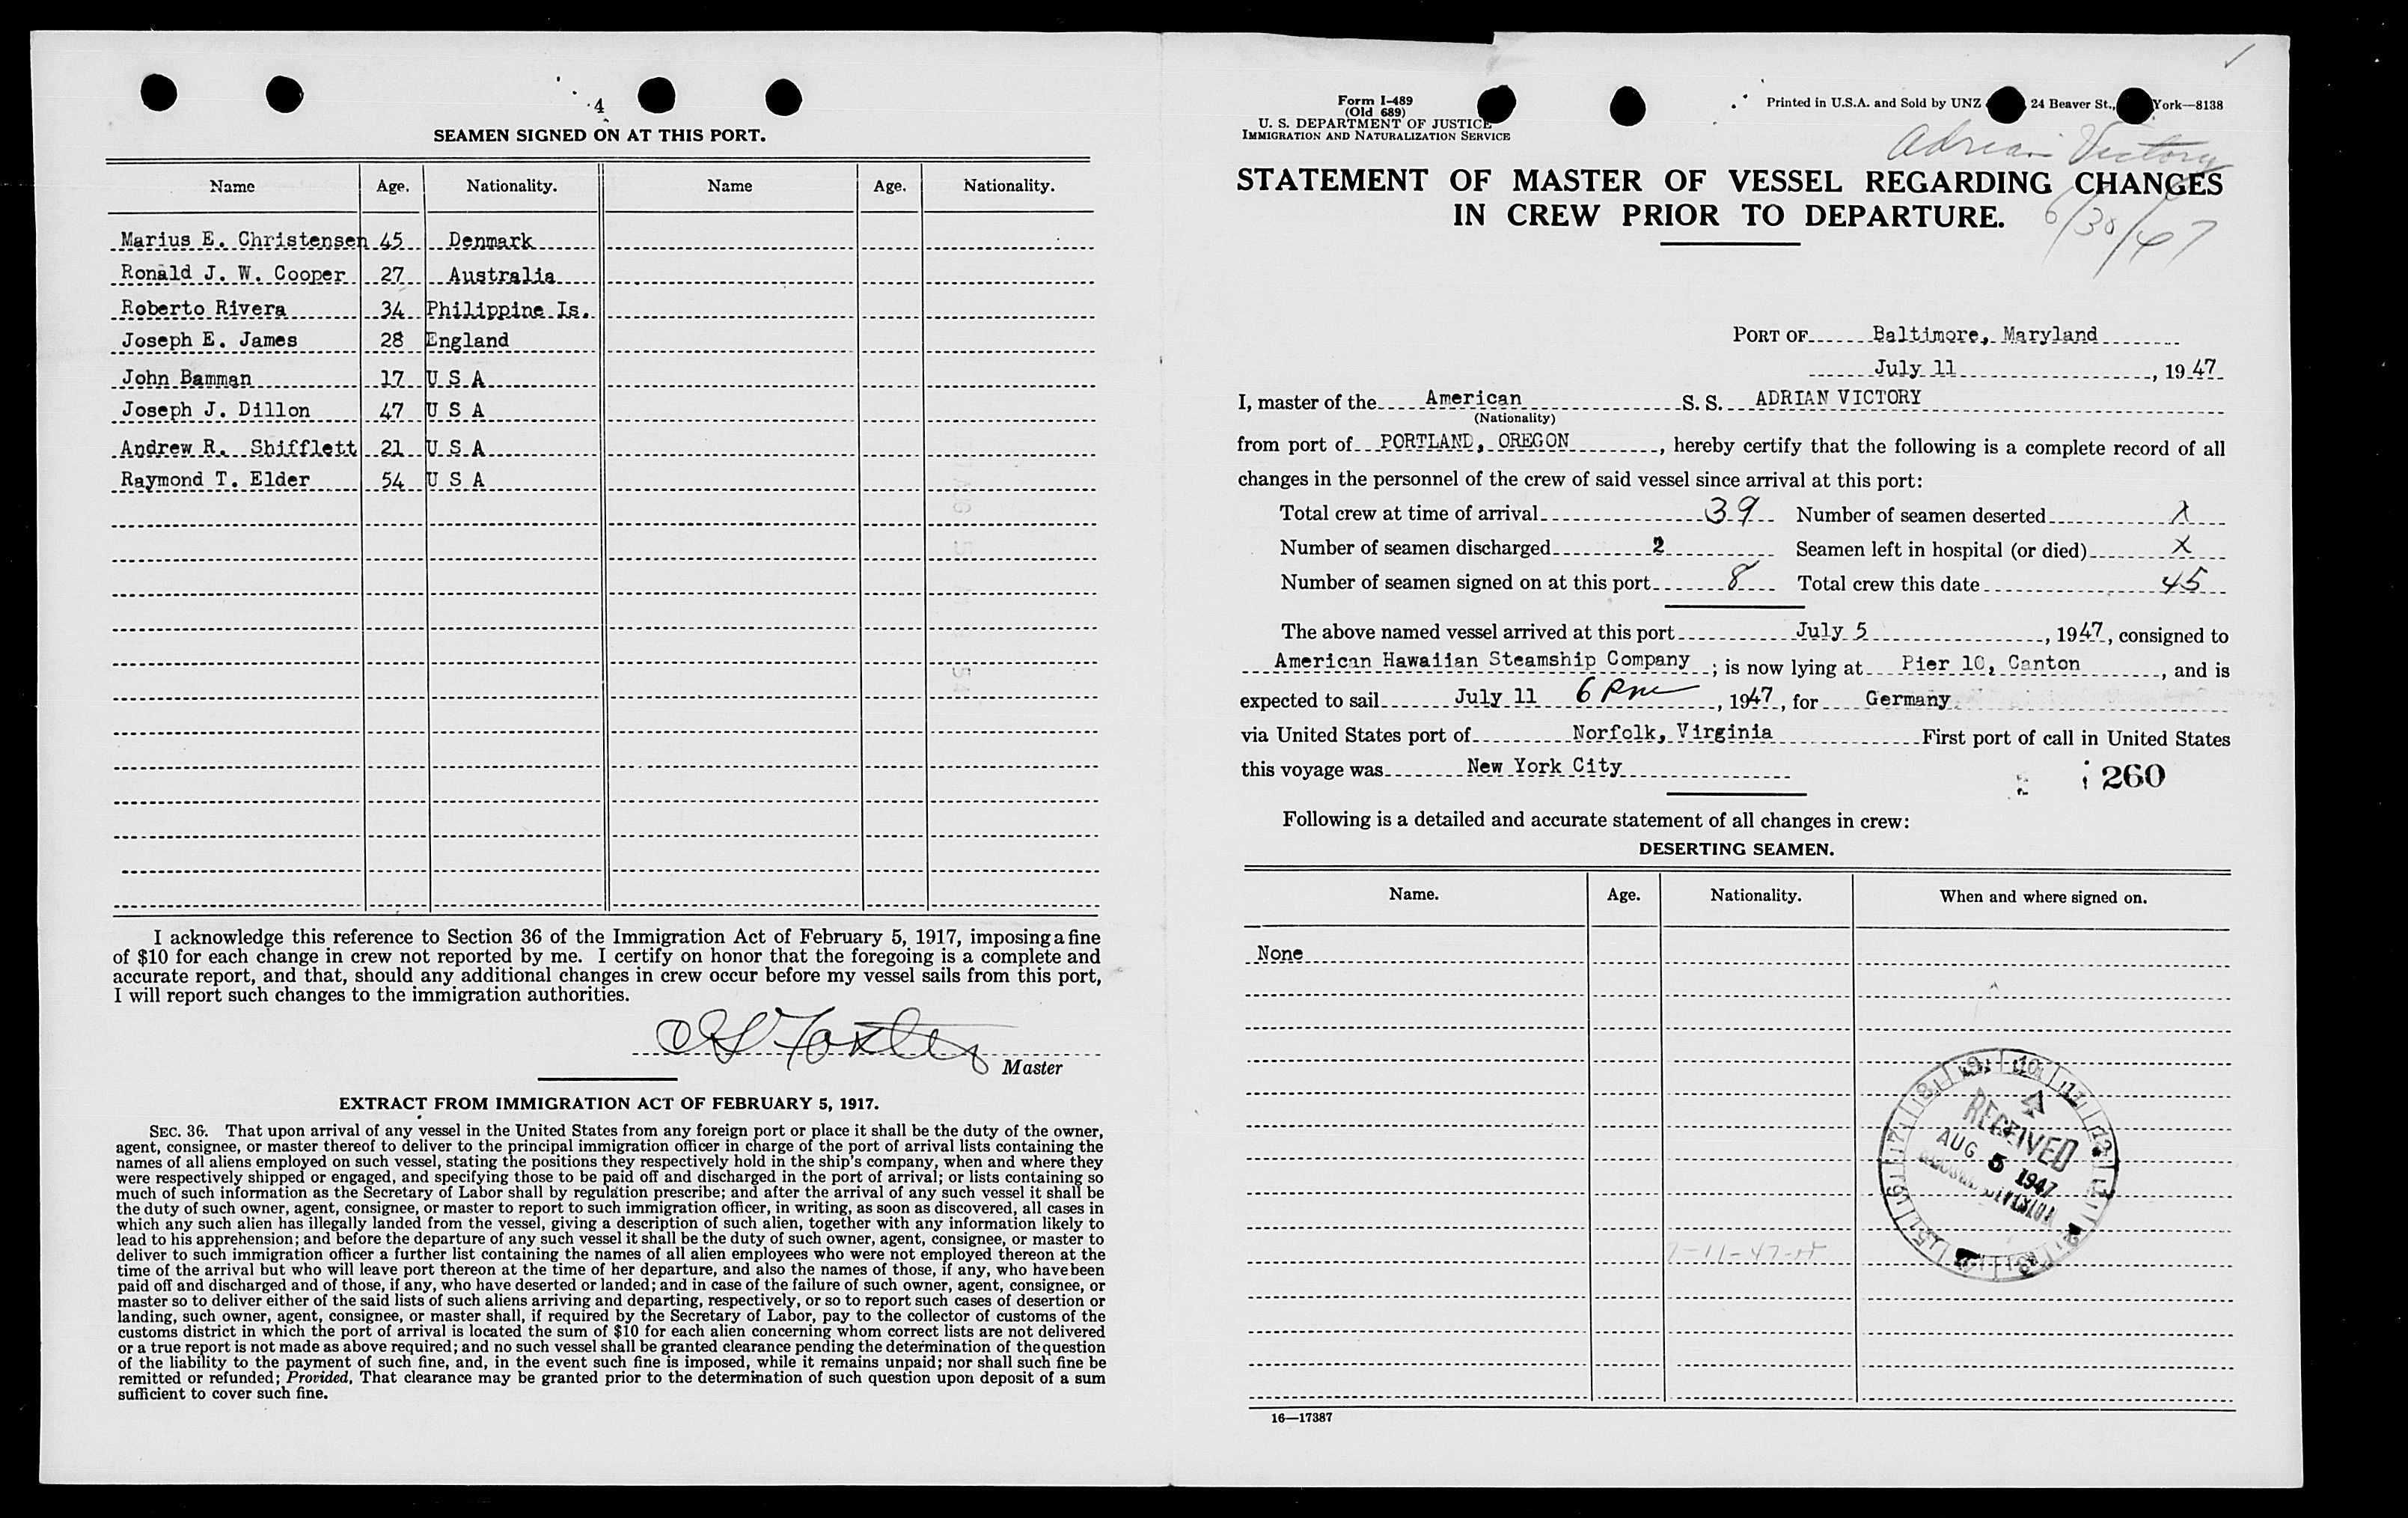 4
SEAMEN SIGNED ON AT THIS PORT.
Name Age. Nationality. Name Age. Nationality.
Marius E. Christensen 45 Denmark
Ronald J. W. Cooper 27 Australia
Roberto Rivera 34 Philippine Is.
Joseph E. James 28 England
John Bamman 17 U S A
Joseph J. Dillon 47 U S A
Andrew R. Shifflett 21 U S A
Raymond T. Elder 54 U S A
I acknowledge this reference to Section 36 of the Immigration Act of February 5, 1917, imposing a fine
of $10 for each change in crew not reported by me. I certify on honor that the foregoing is a complete and
accurate report, and that, should any additional changes in crew occur before my vessel sails from this port,
I will report such changes to the immigration authorities.
Master
EXTRACT FROM IMMIGRATION ACT OF FEBRUARY 5, 1917.
SEC. 36. That upon arrival of any vessel in the United States from any foreign port or place it shall be the duty of the owner,
agent, consignee, or master thereof to deliver to the principal immigration officer in charge of the port of arrival lists containing the
names of all aliens employed on such vessel, stating the positions they respectively hold in the ship's company, when and where they
were respectively shipped or engaged, and specifying those to be paid off and discharged in the port of arrival; or lists containing so
much of such information as the Secretary of Labor shall by regulation prescribe; and after the arrival of any such vessel it shall be
the duty of such owner, agent, consignee, or master to report to such immigration officer, in writing, as soon as discovered, all cases in
which any such alien has illegally landed from the vessel, giving a description of such alien, together with any information likely to
lead to his apprehension; and before the departure of any such vessel it shall be the duty of such owner, agent, consignee, or master to
deliver to such immigration officer a further list containing the names of all alien employees who were not employed thereon at the
time of the arrival but who will leave port thereon at the time of her departure, and also the names of those, if any, who have been
paid off and discharged and of those, if any, who have deserted or landed; and in case of the failure of such owner, agent, consignee, or
master so to deliver either of the said lists of such aliens arriving and departing, respectively, or so to report such cases of desertion or
landing, such owner, agent, consignee, or master shall, if required by the Secretary of Labor, pay to the collector of customs of the
customs district in which the port of arrival is located the sum of $10 for each alien concerning whom correct lists are not delivered
or a true report is not made as above required; and no such vessel shall be granted clearance pending the determination of the question
of the liability to the payment of such fine, and, in the event such fine is imposed, while it remains unpaid; nor shall such fine be
remitted or refunded; Provided, That clearance may be granted prior to the determination of such question upon deposit of a sum
sufficient to cover such fine.
Form I-489
(Old 689)
U. S. DEPARTMENT OF JUSTICE
IMMIGRATION AND NATURALIZATION SERVICE
Printed in U.S.A. and Sold by UNZ 24 Beaver St., York—8138
Adrian Victory
STATEMENT OF MASTER OF VESSEL REGARDING CHANGES
IN CREW PRIOR TO DEPARTURE.
6/30/47
PORT OF Baltimore, Maryland
July 11, 1947
I, master of the American S. S. ADRIAN VICTORY
(Nationality)
from port of PORTLAND, OREGON, hereby certify that the following is a complete record of all
changes in the personnel of the crew of said vessel since arrival at this port:
Total crew at time of arrival 39 Number of seamen deserted X
Number of seamen discharged 2 Seamen left in hospital (or died) X
Number of seamen signed on at this port 8 Total crew this date 45
The above named vessel arrived at this port July 5, 1947, consigned to
American Hawaiian Steamship Company; is now lying at Pier 10, Canton, and is
expected to sail July 11 6 Pm, 1947, for Germany
via United States port of Norfolk, Virginia First port of call in United States
this voyage was New York City
260
Following is a detailed and accurate statement of all changes in crew:
DESERTING SEAMEN.
Name. Age. Nationality. When and where signed on.
None
RECEIVED
AUG 5 1947
DIVISION
16—17387